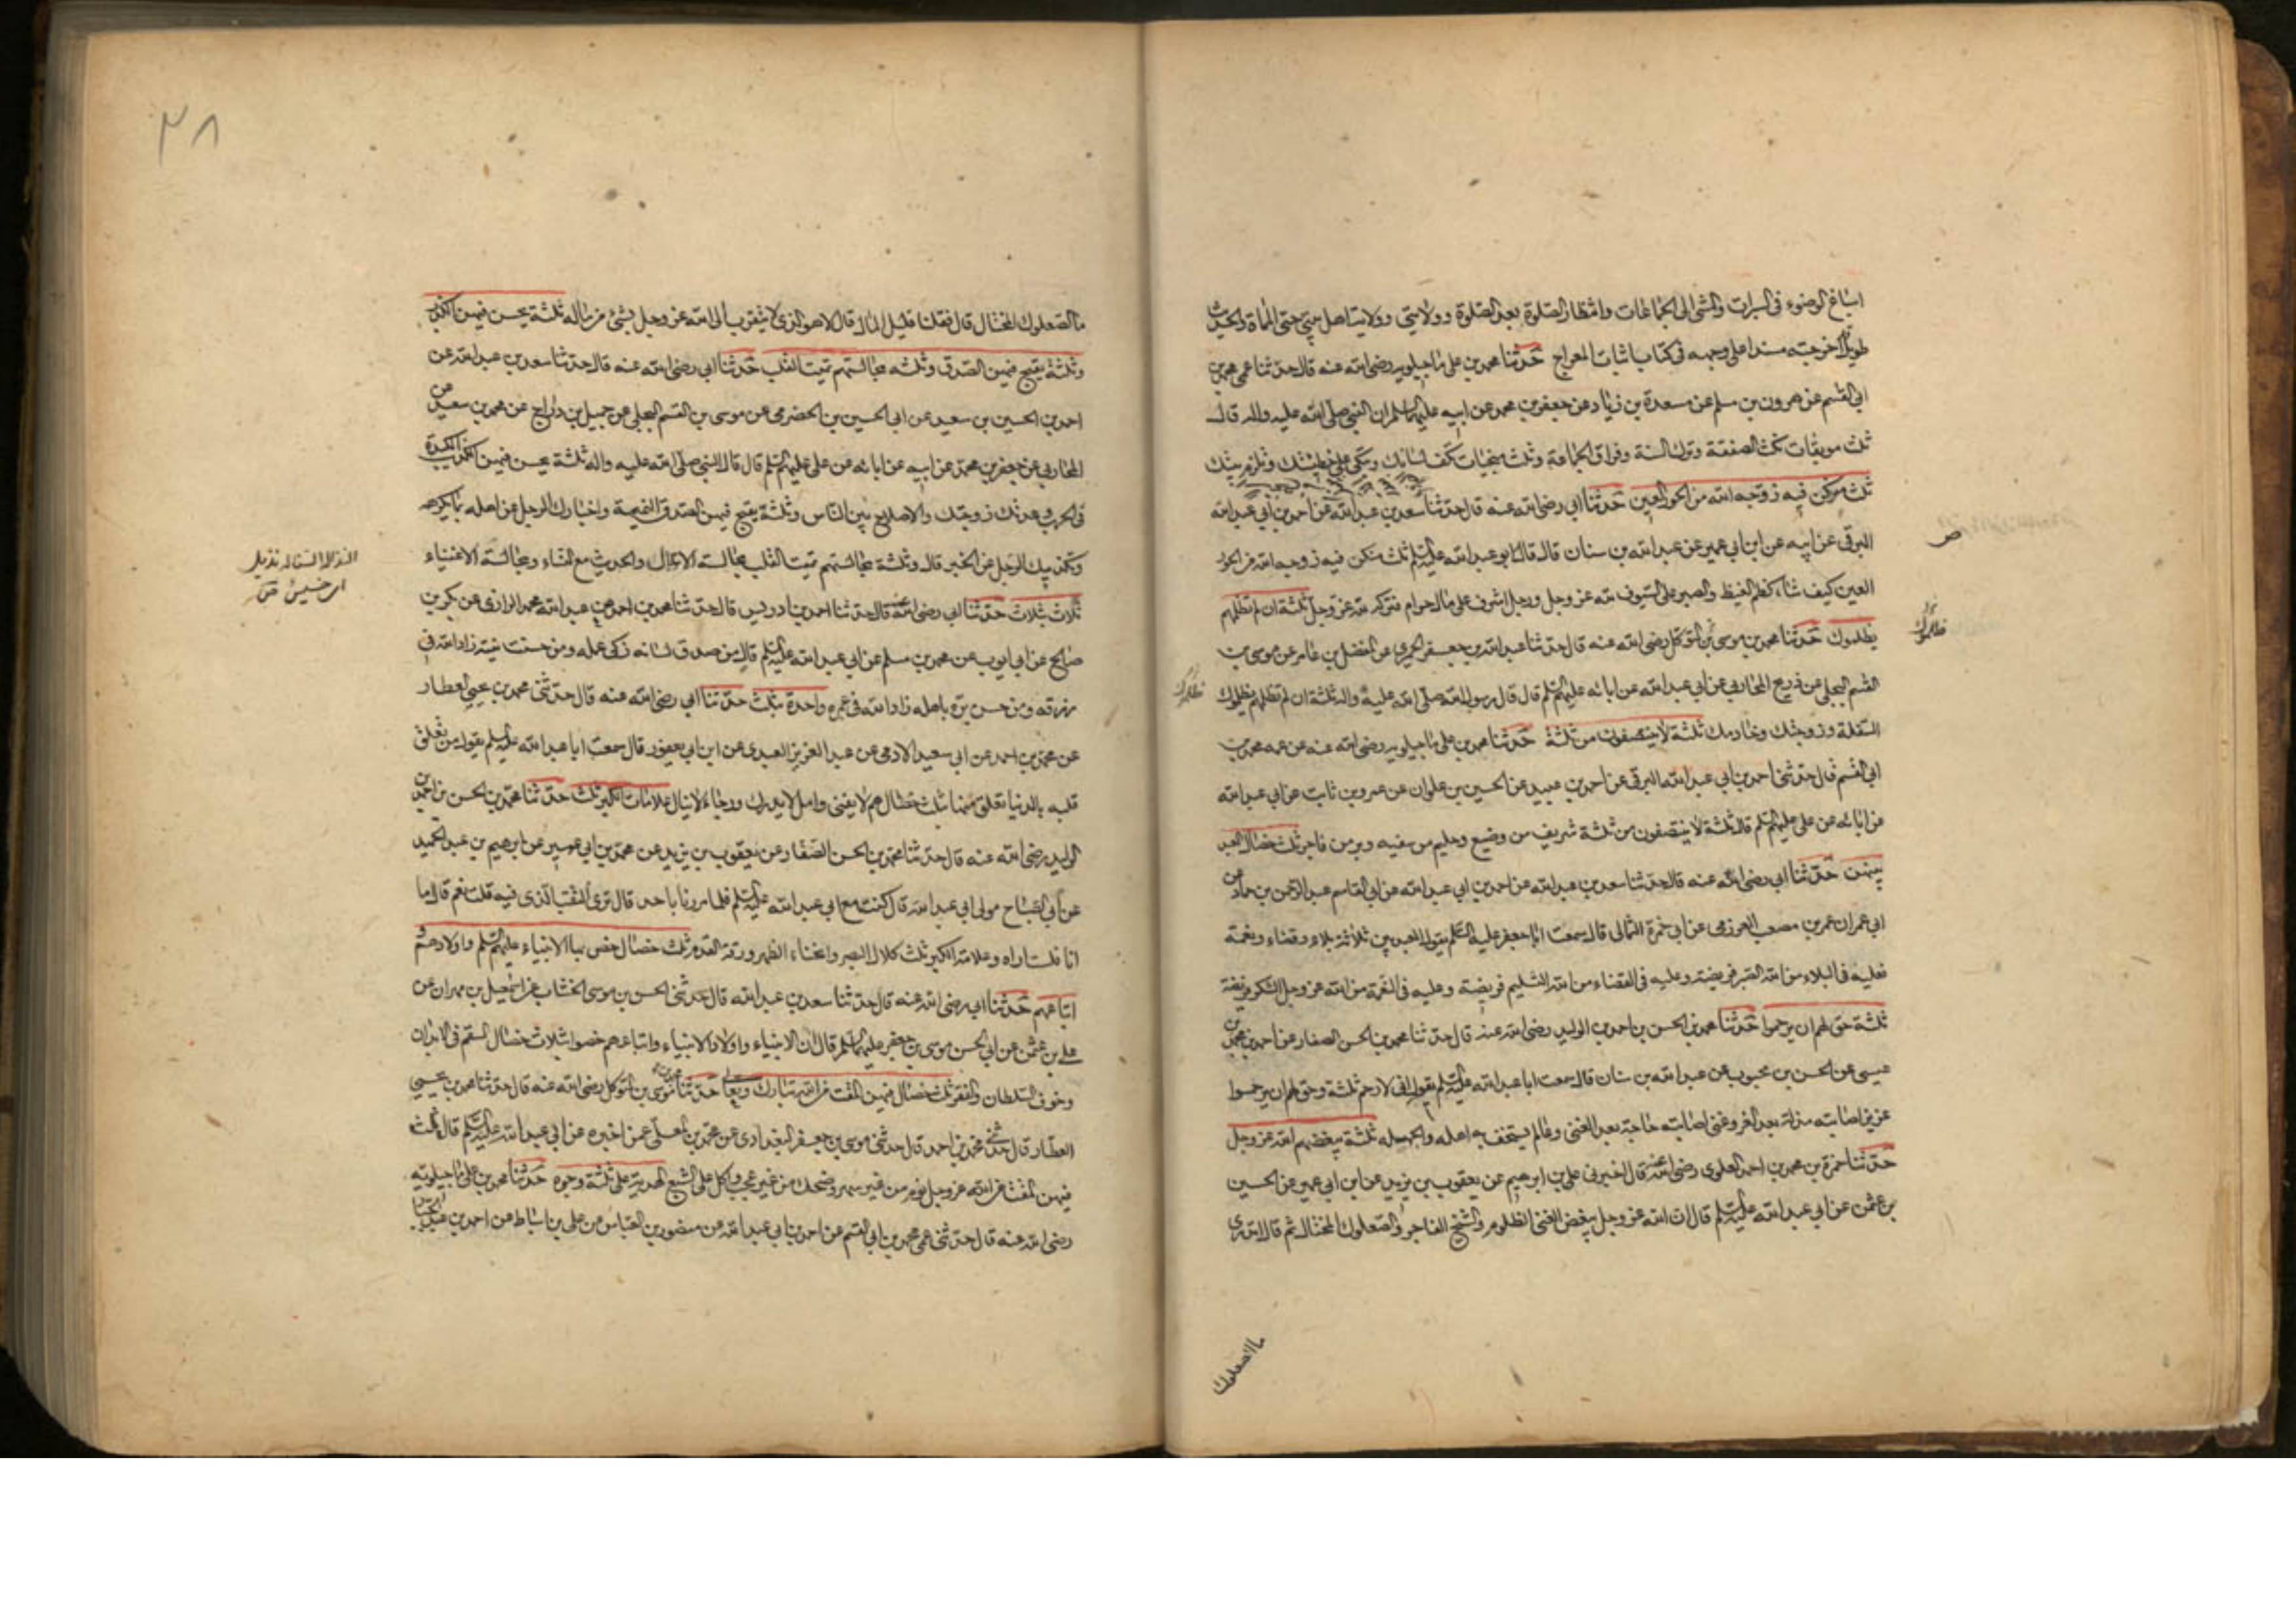 اسباغ الوضوء في السبرات والمشي الى الجماعات وانتظار الصلوة بعد الصلوة وولايتي وولاية اهل بيتي حتى الممات والحديث
طويل اخرجته مسندا على وجهه في كتاب اثبات المعراج حدثنا محمد بن علي ماجيلويه رضي الله عنه قال حدثنا عمي محمد بن
ابي القسم عن هرون بن مسلم عن مسعدة بن زياد عن جعفر بن محمد عن ابيه عليهما السلم ان النبي صلى الله عليه واله قال
ثلث موبقات نكث الصفقة وترك السنة وفراق الجماعة وثلث منجيات تكف لسانك وتبكي على خطيئتك وتلزم بيتك
ثلث من كن فيه زوجه الله من الحور العين حدثنا ابي رضي الله عنه قال حدثنا سعد بن عبد الله عن احمد بن ابي عبد الله
البرقي عن ابيه عن ابن ابي عمير عن عبد الله بن سنان قال قال ابو عبد الله عليه السلم ثلث من كن فيه زوجه الله من الحور
العين كيف شاء كظم الغيظ والصبر على السيوف لله عز وجل ورجل اشرف على مال حرام فتركه لله عز وجل ثلثة ان لم تظلمهم
يظلموك حدثنا محمد بن موسى بن المتوكل رضي الله عنه قال حدثنا عبد الله بن جعفر الحميري عن الفضل بن عامر عن موسى بن
القسم البجلي عن ذريح المحاربي عن ابي عبد الله عن ابائه عليهم السلم قال قال رسول الله صلى الله عليه واله ثلثة ان لم تظلمهم يظلموك
السفلة وزوجتك وخادمك ثلثة لا ينتصفون من ثلثة حدثنا محمد بن علي ماجيلويه رضي الله عنه عن عمه محمد بن
ابي القسم قال حدثني احمد بن ابي عبد الله البرقي عن احمد بن عبيد عن الحسين بن علوان عن عمرو بن ثابت عن ابي عبد الله
عن ابائه عن علي عليهم السلم قال ثلثة لا ينتصفون من ثلثة شريف من وضيع وحليم من سفيه وبر من فاجر ثلث خصال العبد
بينهن حدثنا ابي رضي الله عنه قال حدثنا سعد بن عبد الله عن احمد بن ابي عبد الله عن ابي القاسم عبد الرحمن بن حماد عن
ابي عمران عمر بن مصعب العرزمي عن ابي حمزة الثمالي قال سمعت ابا جعفر عليه السلم يقول العبد بين ثلاثة بلاء وقضاء ونعمة
فعليه في البلاء من الله الصبر فريضة وعليه في القضاء من الله التسليم فريضة وعليه في النعمة من الله عز وجل الشكر فريضة
ثلثة حق لهم ان يرحموا حدثنا محمد بن الحسن بن احمد بن الوليد رضي الله عنه قال حدثنا محمد بن الحسن الصفار عن احمد بن محمد بن
عيسى عن الحسن بن محبوب عن عبد الله بن سنان قال سمعت ابا عبد الله عليه السلم يقول اني لارحم ثلثة وحق لهم ان يرحموا
عزيز اصابته مذلة بعد العز وغني اصابته حاجة بعد الغنى وعالم يستخف به اهله والجهله ثلثة يبغضهم الله عز وجل
حدثنا حمزة بن محمد بن احمد العلوي رضي الله عنه قال اخبرني علي بن ابرهيم عن يعقوب بن يزيد عن ابن ابي عمير عن الحسين
بن عثمن عن ابي عبد الله عليه السلم قال ان الله عز وجل يبغض الغني الظلوم والشيخ الفاجر والصعلوك المختال ثم قال اتدري
ما الصعلوك
ص
يظلموك
ما الصعلوك المختال قال فقلنا قليل المال قال لا هو الذي لا يتقرب الى الله عز وجل بشيء من ماله ثلثة يحسن فيهن الكذب
وثلثة يقبح فيهن الصدق وثلثه مجالستهم تميت القلب حدثنا ابي رضي الله عنه قال حدثنا سعد بن عبد الله عن
احمد بن الحسين بن سعيد عن ابي الحسين بن الحضرمي عن موسى بن القسم البجلي عن جميل بن دراج عن محمد بن سعيد عن
المحاربي عن جعفر بن محمد عن ابيه عن ابائه عن علي عليهم السلم قال قال النبي صلى الله عليه واله ثلثة يحسن فيهن الكذب المكيدة
في الحرب وعدتك زوجتك والاصلاح بين الناس وثلثة يقبح فيهن الصدق النميمة واخبارك الرجل عن اهله بما يكرهه
وتكذيبك الرجل عن الخبر قال وثلثة مجالستهم تميت القلب مجالسة الانذال والحديث مع النساء ومجالسة الاغنياء
ثلاث بثلاث حدثنا ابي رضي الله عنه قال حدثنا احمد بن ادريس قال حدثنا محمد بن احمد عن عبد الله محمد الرازي عن بكر بن
صالح عن ابي ايوب عن محمد بن مسلم عن ابي عبد الله عليه السلم قال من صدق لسانه زكى عمله ومن حسنت نيته زاد الله في
رزقه ومن حسن بره باهله زاد الله في عمره واحدة بثلث حدثنا ابي رضي الله عنه قال حدثني محمد بن يحيى العطار
عن محمد بن احمد عن ابي سعيد الادمي عن عبد العزيز العبدي عن ابن ابي يعفور قال سمعت ابا عبد الله عليه السلم يقول من تعلق
قلبه بالدنيا تعلق منها بثلث خصال هم لا يفنى وامل لا يدرك ورجاء لا ينال علامات الكبر ثلث حدثنا محمد بن الحسن بن احمد بن
الوليد رضي الله عنه قال حدثنا محمد بن الحسن الصفار عن يعقوب بن يزيد عن محمد بن ابي عمير عن ابرهيم بن عبد الحميد
عن ابي الصباح مولى ابي عبد الله قال كنت مع ابي عبد الله عليه السلم فلما مررنا باحد قال ترى الثقب الذي فيه قلت نعم قال اما
انا فلست اراه وعلامة الكبر ثلث كلال البصر وانحناء الظهر ورقة القدم ثلث خصال خص بها الانبياء عليهم السلم واولادهم و
اتباعهم حدثنا ابي رضي الله عنه قال حدثنا سعد بن عبد الله قال حدثني الحسن بن موسى الخشاب عن اسمعيل بن مهران عن
علي بن عثمن عن ابي الحسن موسى بن جعفر عليهما السلم قال ان الانبياء واولاد الانبياء واتباعهم خصوا بثلاث خصال السقم في الابدان
وخوف السلطان والفقر ثلث خصال فيهن المقت من الله تبارك وتعالى حدثنا محمد بن موسى بن المتوكل رضي الله عنه قال حدثنا محمد بن يحيى
العطار قال حدثني محمد بن احمد قال حدثني موسى بن جعفر البغدادي عن محمد بن المعلى عمن اخبره عن ابي عبد الله عليه السلم قال ثلث
فيهن المقت من الله عز وجل نوم من غير سهر وضحك من غير عجب واكل على الشبع الهدية على ثلثة وجوه حدثنا محمد بن علي ماجيلويه
رضي الله عنه قال حدثني عمي محمد بن ابي القسم عن احمد بن ابي عبد الله عن منصور بن العباس عن علي بن اسباط عن احمد بن عبد الجبار
٢٨